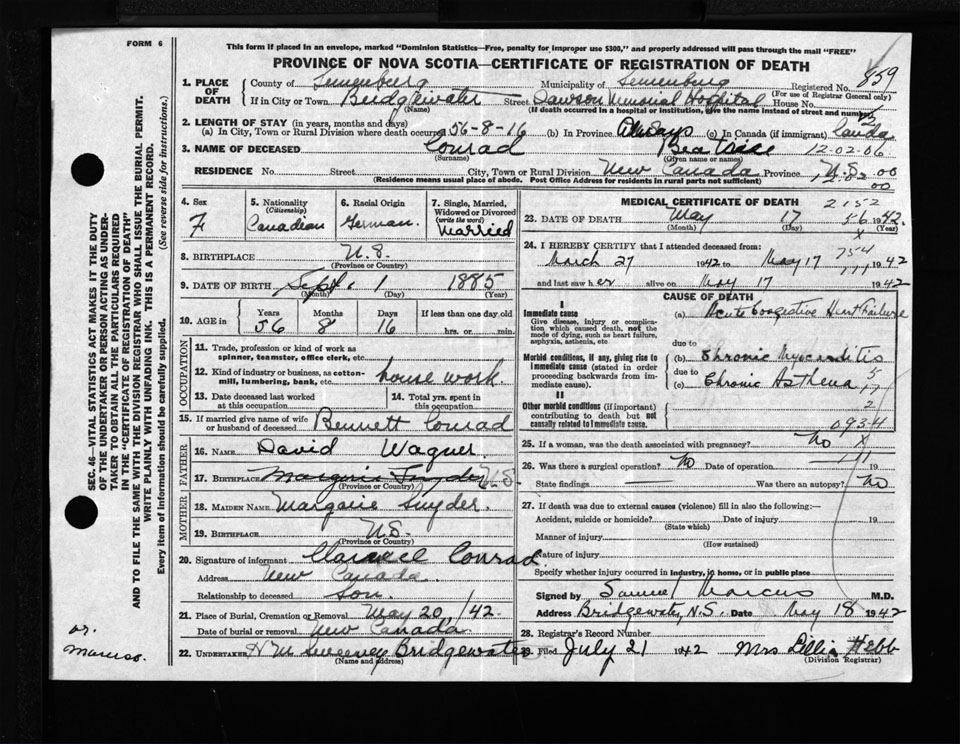 FORM 6
This form if placed in an envelope, marked "Dominion Statistics—Free, penalty for improper use $300," and properly addressed will pass through the mail "FREE"
PROVINCE OF NOVA SCOTIA—CERTIFICATE OF REGISTRATION OF DEATH
859
1. PLACE OF DEATH County of Lunenburg Municipality of Lunenburg Registered No.
(For use of Registrar General only)
If in City or Town Bridgewater Street Dawson Memorial Hospital House No.
(Name) (If death occurred in a hospital or institution, give the name instead of street and number)
2. LENGTH OF STAY (in years, months and days)
(a) In City, Town or Rural Division where death occurred 56-8-16 (b) In Province Always (c) In Canada (if immigrant) Canada
3. NAME OF DECEASED Conrad Beatrice 12-02-06
(Surname) (Given name or names)
RESIDENCE No. Street City, Town or Rural Division New Canada Province N.S.
(Residence means usual place of abode. Post Office Address for residents in rural parts not sufficient)
4. Sex F
5. Nationality (Citizenship) Canadian
6. Racial Origin German
7. Single, Married, Widowed or Divorced (write the word) Married
8. BIRTHPLACE N.S.
(Province or Country)
9. DATE OF BIRTH Sept. 1 1885
(Month) (Day) (Year)
10. AGE in Years 56 Months 8 Days 16 If less than one day old hrs. or min.
OCCUPATION
11. Trade, profession or kind of work as spinner, teamster, office clerk, etc.
12. Kind of industry or business, as cotton-mill, lumbering, bank, etc. house work.
13. Date deceased last worked at this occupation
14. Total yrs. spent in this occupation
15. If married give name of wife or husband of deceased Bennett Conrad
FATHER
16. NAME David Wagner
17. BIRTHPLACE Margarie Snyder N.S.
(Province or Country)
MOTHER
18. MAIDEN NAME Margarie Snyder.
19. BIRTHPLACE N.S.
(Province or Country)
20. Signature of informant Conrad
Address New Canada
Relationship to deceased Son.
21. Place of Burial, Cremation or Removal May 20/42
Date of burial or removal New Canada
22. UNDERTAKER H M Sweeney Bridgewater
(Name and address)
MEDICAL CERTIFICATE OF DEATH 2152
23. DATE OF DEATH May 17 1942
(Month) (Day) (Year)
56
24. I HEREBY CERTIFY that I attended deceased from:
March 27 1942 to May 17 1942
754
and last saw her alive on May 17 1942
CAUSE OF DEATH
I
Immediate cause (a) Acute Congestive Heart Failure
Give disease, injury or complication which caused death, not the mode of dying, such as heart failure, asphyxia, asthenia, etc.
due to
Morbid conditions, if any, giving rise to immediate cause (stated in order proceeding backwards from immediate cause). (b) Chronic Myocarditis
due to
(c) Chronic Asthma
II
Other morbid conditions (if important) contributing to death but not causally related to immediate cause.
0934
25. If a woman, was the death associated with pregnancy? No
26. Was there a surgical operation? No Date of operation 19
State findings Was there an autopsy? No
27. If death was due to external causes (violence) fill in also the following:—
Accident, suicide or homicide? Date of injury 19
(State which)
Manner of injury
(How sustained)
Nature of injury
Specify whether injury occurred in industry, in home, or in public place
Signed by Samuel Marcus M.D.
Address Bridgewater, N.S. Date May 18 1942
28. Registrar's Record Number
Filed July 21 1942 Mrs Lillia Hebb
(Division Registrar)
SEC. 46—VITAL STATISTICS ACT MAKES IT THE DUTY
OF THE UNDERTAKER OR PERSON ACTING AS UNDERTAKER TO OBTAIN ALL THE PARTICULARS REQUIRED
IN THE "CERTIFICATE OF REGISTRATION OF DEATH"
AND TO FILE THE SAME WITH THE DIVISION REGISTRAR WHO SHALL ISSUE THE BURIAL PERMIT.
WRITE PLAINLY WITH UNFADING INK. THIS IS A PERMANENT RECORD.
Every item of information should be carefully supplied. (See reverse side for instructions.)